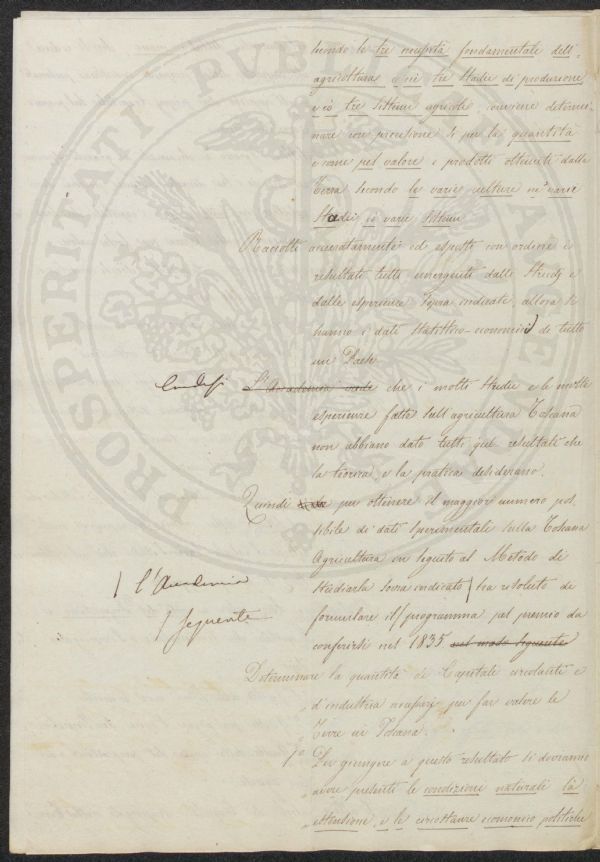 condo le tre necessità fondamentale dell'
agricoltura o ciò tre Studii di produzione
e ciò tre Sistemi agricole conviene determi-
nare con precisione sì per la quantità
e come pel valore i prodotti ottenuti dalla
Terra secondo le varie culture ne' varii
Stadii e varii Sistemi
Raccolti accuratamente ed esposti con ordine i
resultati tutti emergenti dalli Studj e
dalle esperienze sopra indicate, allora si
hanno i dati Statistico-economici di tutto
un Paese
L'Accademia vede che i molti Studii e le molte
esperienze fatte sull'agricoltura Toscana
non abbiano dato tutti quei resultati che
la teorica e la pratica desiderano.
Quindi per ottenere il maggior numero pos_
sibile di dati Sperimentali sulla Toscana
Agricoltura in seguito al Metodo di
| l'Accademia
Studiarla sovra indicato | ha resoluto di
| seguente
formulare il | programma pel premio da
conferirsi nel 1835 nel modo seguente
Determinare la quantità di Capitali circolanti e
d'industria per far valere le
Terre in Toscana.
1.º Per giungere a questo resultato si dovranno
avere presenti le condizione naturali la
estensione, e le circostanze economico politiche